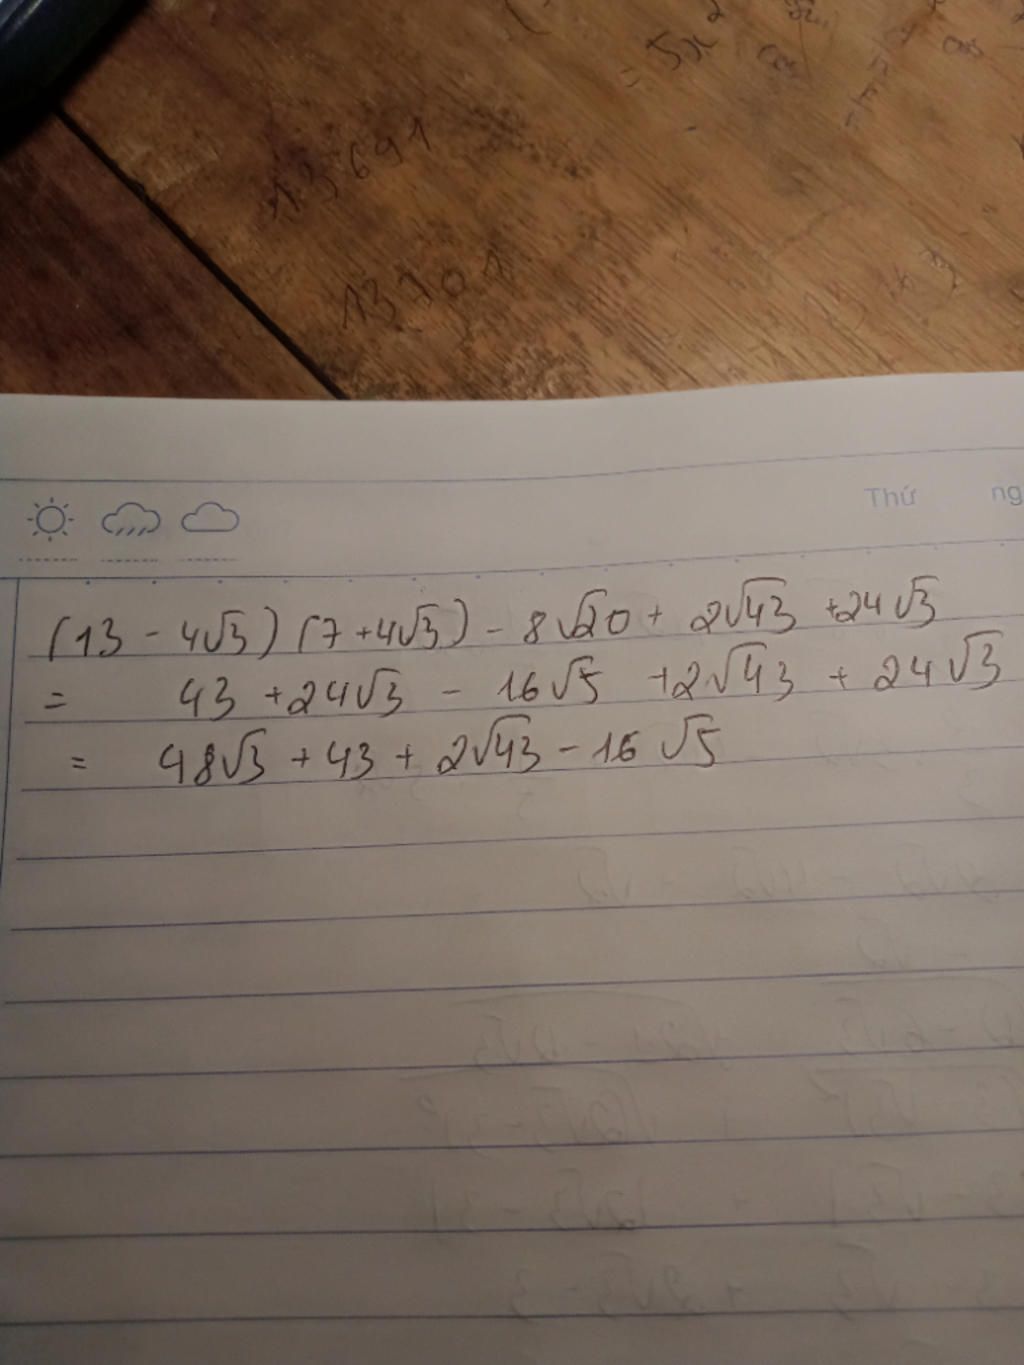 = 5x
13691
13701
Thứ ng
(13 - 4√3)(7 + 4√3) - 8√20 + 2√43 + 24√3
= 43 + 24√3 - 16√5 + 2√43 + 24√3
= 48√3 + 43 + 2√43 - 16√5